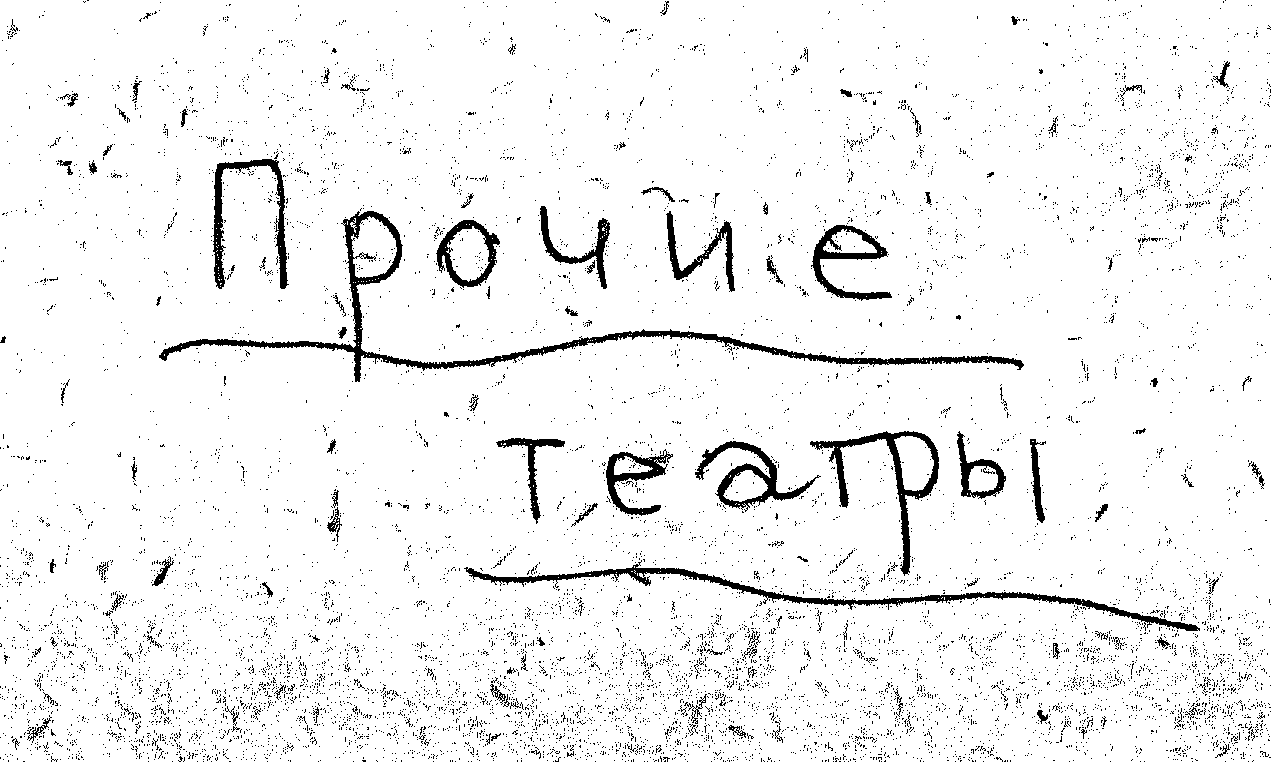 Прочие
театры